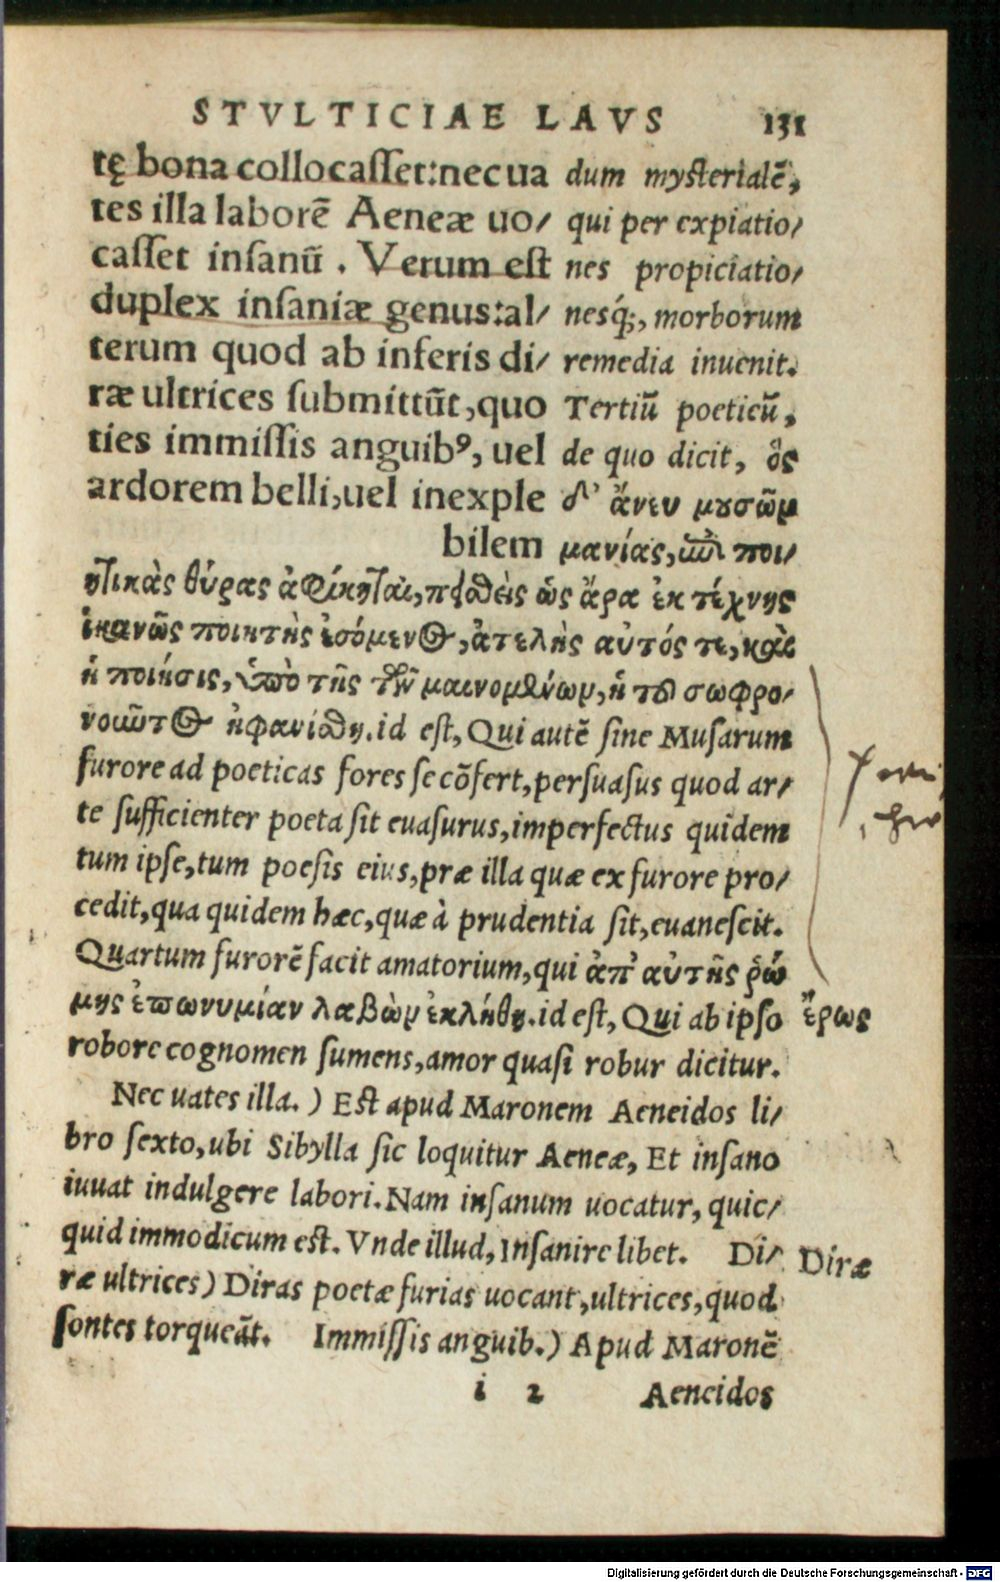 STVLTICIAE LAVS 131
tę bona collocasset:nec ua
tes illa laborẽ Aeneæ uo/
casset insanũ. Verum est
duplex insaniæ genus:al/
terum quod ab inferis di/
ræ ultrices submittũt,quo
ties immissis anguibꝰ, uel
ardorem belli,uel inexple
bilem
dum mysterialẽ,
qui per expiatio/
nes propiciatio/
nesq́;, morborum
remedia inuenit.
Tertiũ poeticũ,
de quo dicit, ὃς
δ’ ἄνευ μουσῶμ
μανίας, ἐπὶ ποι/
ητικὰς θύρας ἀφίκηται, πεισθεὶς ὡς ἄρα ἐκ τέχνης
ἱκανῶς ποιητὴς ἐσόμενος, ἀτελὴς αὐτός τε, καὶ
ἡ ποιήσις, ὑπὸ τῆς τῶν μαινομένωμ, ἡ τοῦ σωφρο/
νοῦντος ἠφανίσθη. id est, Qui autẽ sine Musarum
furore ad poeticas fores se cõfert, persuasus quod ar/
te sufficienter poeta sit euasurus, imperfectus quidem
tum ipse, tum poesis eius, præ illa quæ ex furore pro/
cedit, qua quidem hæc, quæ à prudentia sit, euanescit.
Quartum furorẽ facit amatorium, qui ἀπ’ αὐτῆς ῥώ
μης ἐπωνυμίαν λαβὼμ ἐκλήθη. id est, Qui ab ipso
ἔρως
robore cognomen sumens, amor quasi robur dicitur.
Nec uates illa. ) Est apud Maronem Aeneidos li/
bro sexto, ubi Sibylla sic loquitur Aeneæ, Et insano
iuuat indulgere labori. Nam insanum uocatur, quic/
quid immodicum est. Vnde illud, Insanire libet. Di/
Diræ
ræ ultrices) Diras poetæ furias uocant, ultrices, quod
sontes torqueãt. Immissis anguib.) Apud Maronẽ
i 2 Aeneidos
Digitalisierung gefördert durch die Deutsche Forschungsgemeinschaft - DFG